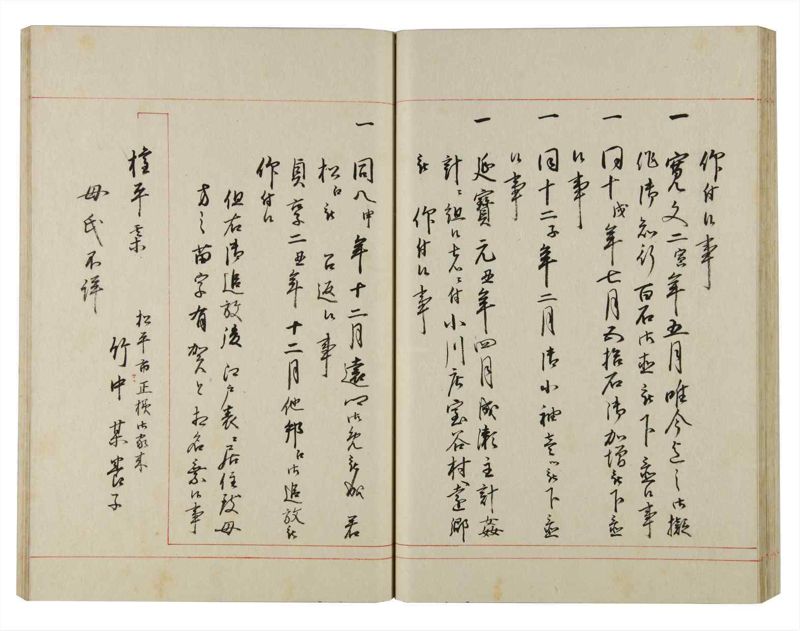 仰付候事
一 寛文二寅年五月唯今迄之御擬
作御知行百石御直被下置候事
一 同十戌年七月五拾石御加増被下置
候事
一 同十二子年二月御小袖壱ツ被下置
候事
一 延寶元丑年四月成瀬主計姦
計ニ組候者ニ付小川庄宝谷村遠郷
被 仰付候事
一 同八申年十二月遠郷御免被成 若
松江被 召返候事
貞享二丑年十二月他邦江御追放被
仰付候
但右御追放後江戸表ニ居住致母
方之苗字有賀と相名乗候事
権平某
松平市正様御家来
竹中某養子
母氏不詳